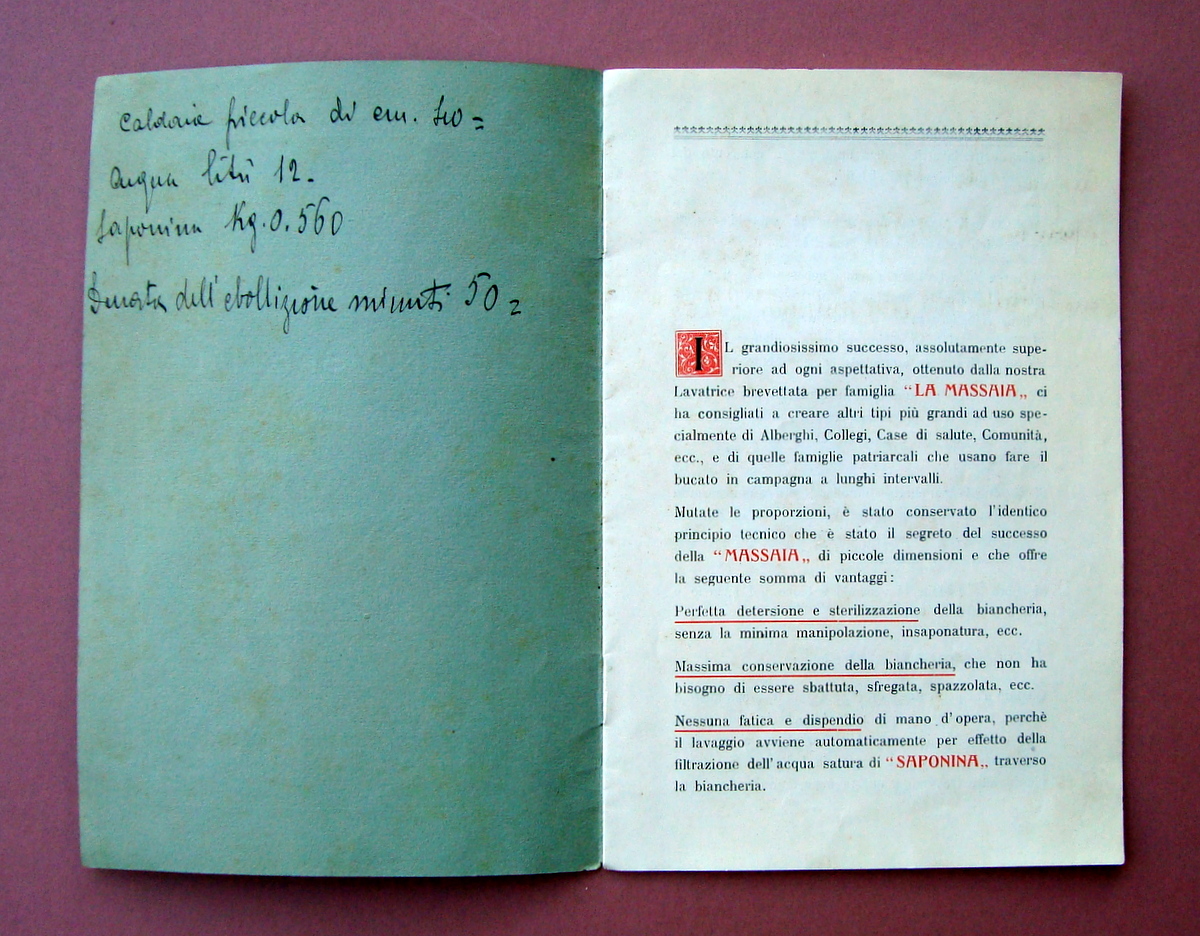 Caldaia piccola di cm. 40=
Acqua litri 12.
Saponina Kg. 0.560
Durata dell'ebollizione minuti 50=
IL grandiosissimo successo, assolutamente supe-
riore ad ogni aspettativa, ottenuto dalla nostra
Lavatrice brevettata per famiglia “LA MASSAIA„ ci
ha consigliati a creare altri tipi più grandi ad uso spe-
cialmente di Alberghi, Collegi, Case di salute, Comunità,
ecc., e di quelle famiglie patriarcali che usano fare il
bucato in campagna a lunghi intervalli.
Mutate le proporzioni, è stato conservato l'identico
principio tecnico che è stato il segreto del successo
della “MASSAIA„ di piccole dimensioni e che offre
la seguente somma di vantaggi:
Perfetta detersione e sterilizzazione della biancheria,
senza la minima manipolazione, insaponatura, ecc.
Massima conservazione della biancheria, che non ha
bisogno di essere sbattuta, sfregata, spazzolata, ecc.
Nessuna fatica e dispendio di mano d'opera, perchè
il lavaggio avviene automaticamente per effetto della
filtrazione dell'acqua satura di “SAPONINA„ traverso
la biancheria.